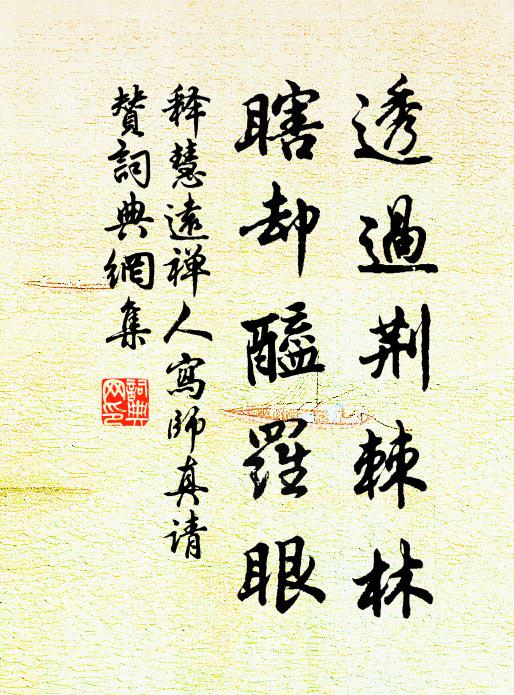 透過荆棘林
瞎却醯羅眼
释慧遠禅人寫师真请
贊詞典網集
詞典网印